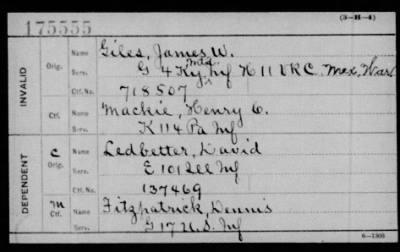 175555 (3-H-4)
INVALID
Orig. Name Giles, James W.
Serv. G 4 Ky. Mtd. Inf H 11 VRC. Mex. War
Ctf. No. 718507
Ctf. Name Mackie, Henry C.
Serv. K 114 Pa Inf
DEPENDENT
C Orig. Name Ledbetter, David
Serv. E 101 Ill Inf
Ctf. No. 137469
m Ctf. Name Fitzpatrick, Dennis
Serv. G 17 U.S. Inf
6—1303